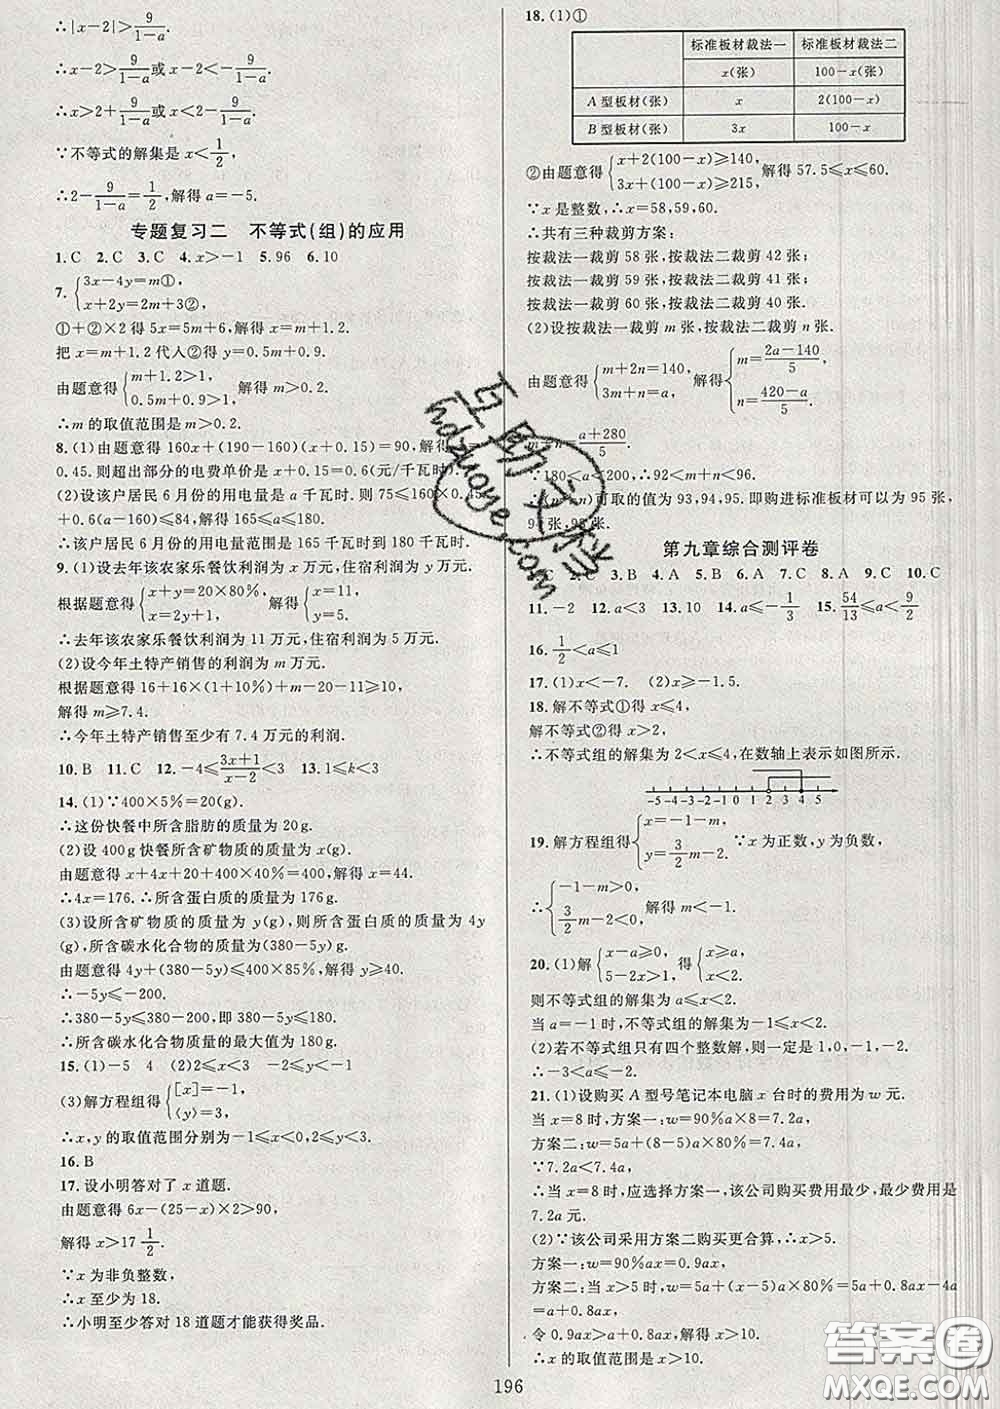 ∴|x−2|>9/(1−a).
∴x−2>9/(1−a)或x−2<−9/(1−a).
∴x>2+9/(1−a)或x<2−9/(1−a).
∵不等式的解集是x<1/2,
∴2−9/(1−a)=1/2,解得a=−5.
专题复习二 不等式(组)的应用
1.C 2.C 3.C 4.x>−1 5.96 6.10
7.{3x−4y=m①,
x+2y=2m+3②,
①+②×2得5x=5m+6,解得x=m+1.2.
把x=m+1.2代人②得y=0.5m+0.9.
由题意得{m+1.2>1, 0.5m+0.9>1, 解得m>0.2.
∴m的取值范围为m>0.2.
8.(1)由题意得160x+(190−160)(x+0.15)=90,解得
0.45.则超出部分的电费单价是x+0.15=0.6(元/千瓦时).
(2)设该户居民6月份的用电量是a千瓦时.则75≤160×0.45
+0.6(a−160)≤84,解得165≤a≤180.
∴该户居民6月份的用电量范围是165千瓦时到180千瓦时.
9.(1)设去年该农家乐餐饮利润为x万元,住宿利润为y万元.
根据题意得{x+y=20×80%, x=2y+1, 解得{x=11, y=5.
∴去年该农家乐餐饮利润为11万元,住宿利润为5万元.
(2)设今年土特产销售的利润为m万元.
根据题意得16+16×(1+10%)+m−20−11≥10,
解得m≥7.4.
∴今年土特产销售至少有7.4万元的利润.
10.B 11.C 12.−4≤(3x+1)/(x−2)<3 13.1≤k<3
14.(1)∵400×5%=20(g).
∴这份快餐中所含脂肪的质量为20g.
(2)设400g快餐所含矿物质的质量为x(g).
由题意得x+4x+20+400×40%=400,解得x=44.
∴4x=176.∴所含蛋白质的质量为176g.
(3)设所含矿物质的质量为y(g),则所含蛋白质的质量为4y
(g),所含碳水化合物的质量为(380−5y)g.
由题意得4y+(380−5y)≤400×85%,解得y≥40.
∴−5y≤−200.
∴380−5y≤380−200,即380−5y≤180.
∴所含碳水化合物质量的最大值为180g.
15.(1)−5 4 (2)2≤x<3 −2≤y<−1
(3)解方程组得{[x]=−1, ⟨y⟩=3.
∴x,y的取值范围分别为−1≤x<0,2≤y<3.
16.B
17.设小明答对了x道题.
由题意得6x−(25−x)×2>96,
解得x>17 1/2.
∵x为非负整数,
∴x至少为18.
∴小明至少答对18道题才能获得奖品.
18.(1)①
标准板材裁法一 标准板材裁法二
x(张) 100−x(张)
A型板材(张) x 2(100−x)
B型板材(张) 3x 100−x
②由题意得{x+2(100−x)≥140, 3x+(100−x)≥215, 解得57.5≤x≤60.
∵x是整数,∴x=58,59,60.
∴共有三种裁剪方案:
按裁法一裁剪58张,按裁法二裁剪42张;
按裁法一裁剪59张,按裁法二裁剪41张;
按裁法一裁剪60张,按裁法二裁剪40张.
(2)设按裁法一裁剪m张,按裁法二裁剪n张.
由题意得{m+2n=140, 3m+n=a, 解得{m=(2a−140)/5, n=(420−a)/5.
=(a+280)/5.
∵180<a<200,∴92<m+n<96.
可取的值为93,94,95.即购进标准板材可以为95张,
第九章综合测评卷
2.C 3.B 4.A 5.B 6.A 7.C 8.A 9.C 10.C
11.−2 12.a<3 13.10 14.a≤−1/3 15.54/13≤a<9/2
16.1/2<a≤1
17.(1)x<−7. (2)x≥−1.5.
18.解不等式①得x≤4,
解不等式②得x>2,
∴不等式组的解集为2<x≤4,在数轴上表示如图所示.
−5 −4 −3 −2 −1 0 1 2 3 4 5
19.解方程组得{x=−1−m, y=3/2m−2. ∵x为正数,y为负数,
∴{−1−m>0, 3/2m−2<0, 解得m<−1.
20.(1)解{x−a≥0, 5−2x>1, 得{x≥a, x<2.
则不等式组的解集为a≤x<2.
当a=−1时,不等式组的解集为−1≤x<2.
(2)若不等式组只有四个整数解,则一定是1,0,−1,−2.
∴−3<a≤−2.
21.(1)设购买A型号笔记本电脑x台时的费用为w元.
当x=8时,方案一:w=90%a×8=7.2a.
方案二:w=5a+(8−5)a×80%=7.4a.
∵7.2a<7.4a.
∴当x=8时,应选择方案一,该公司购买费用最少,最少是
7.2a元.
(2)∵该公司采用方案二购买更合算,∴x>5.
方案一:w=90%ax=0.9ax.
方案二:当x>5时,w=5a+(x−5)a×80%=5a+0.8ax−4a
=a+0.8ax,
令0.9ax>a+0.8ax,解得x>10.
∴x的取值范围是x>10.
196
互助文档
hdzuoye.com
答案圈
MXQE.COM